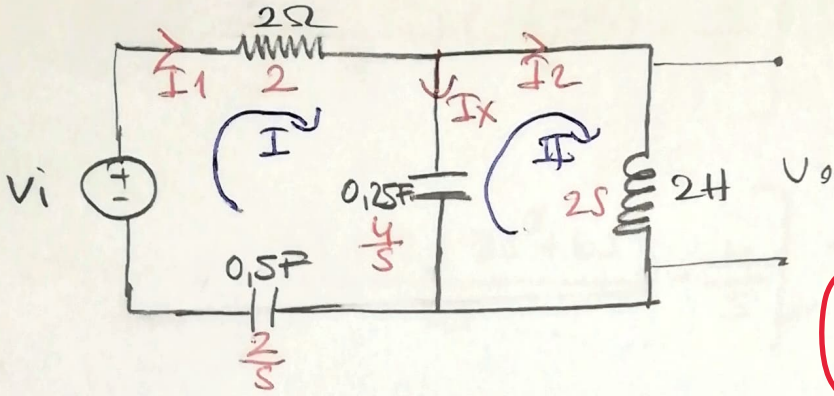 2Ω
I1
2
I2
Ix
I
II
Vi
+
-
0,25F
4/s
2s
2H
Vo
0,5F
2/s